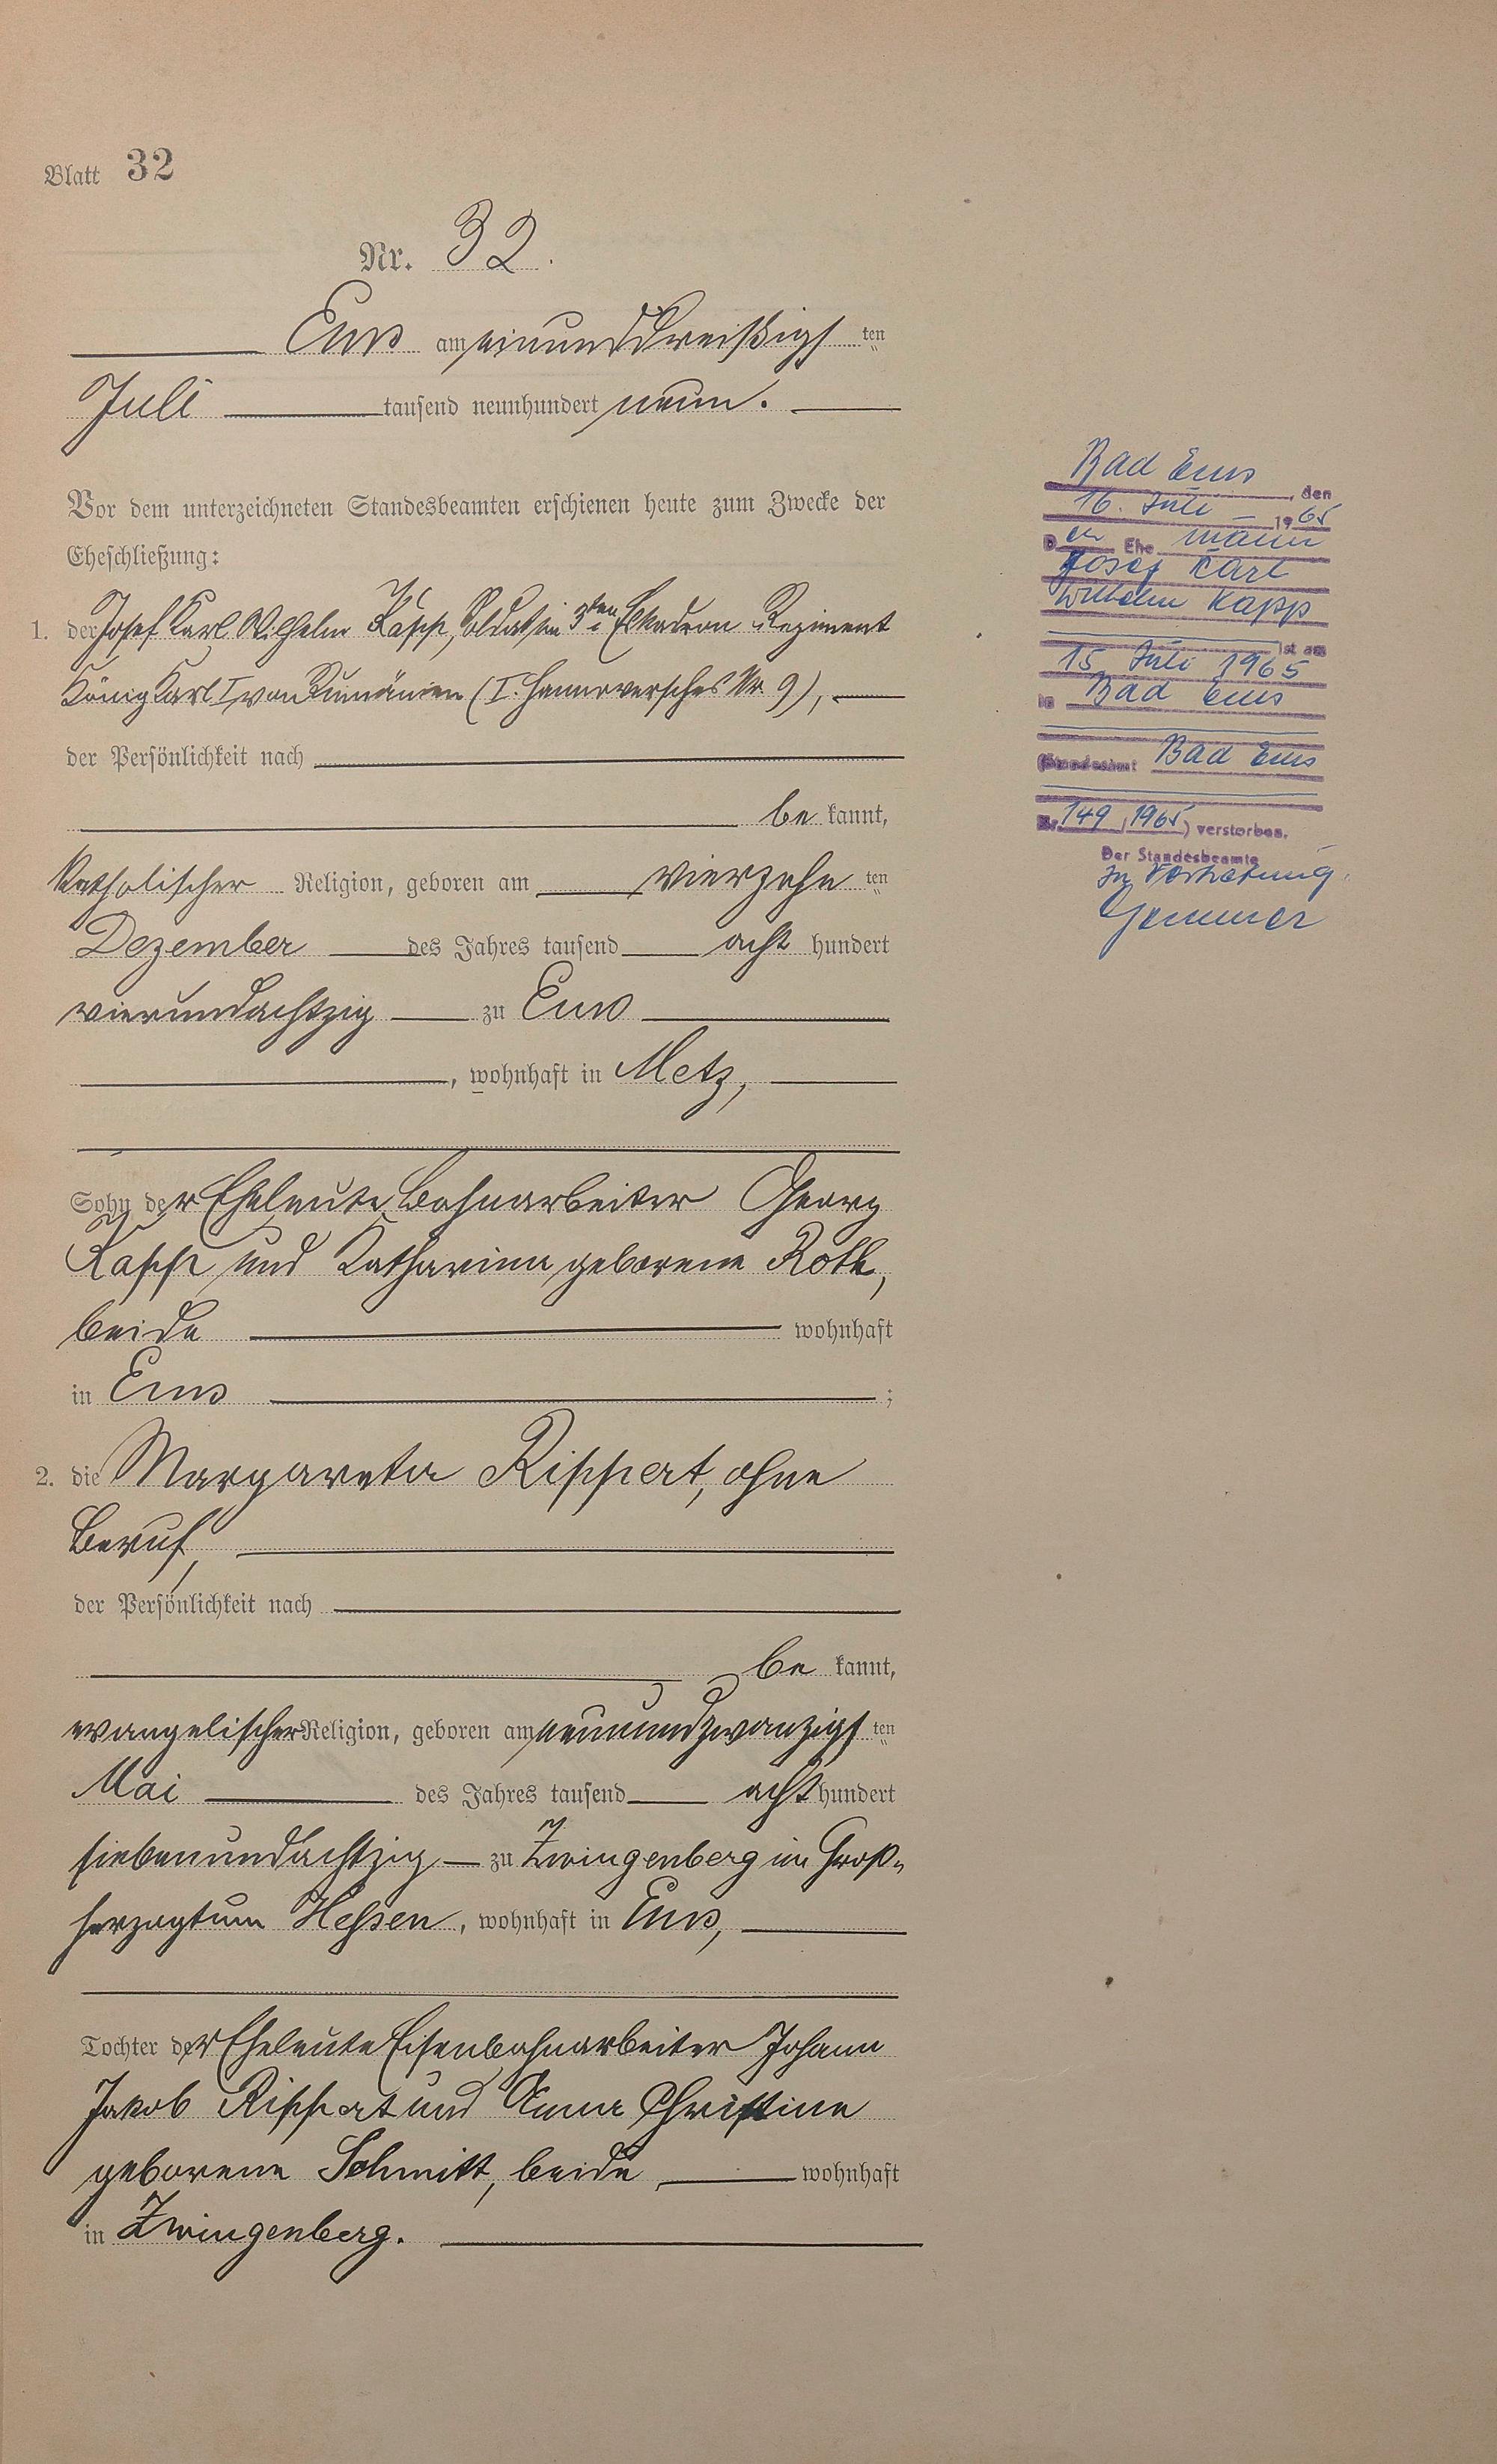 Blatt 32
Nr. 32.
Ems am einunddreißigsten
Juli tausend neunhundert neun.
Vor dem unterzeichneten Standesbeamten erschienen heute zum Zwecke der
Eheschließung:
1. der Josef Karl Wilhelm Kapp, Soldat im 3ten Eskadron Regiment
König Karl I von Rumänien (I. Hannoversches Nr. 9),
der Persönlichkeit nach
be kannt,
katholischer Religion, geboren am vierzehn ten
Dezember des Jahres tausend acht hundert
vierundachtzig zu Ems
, wohnhaft in Metz,
Sohn der Eheleute Bahnarbeiter Georg
Kapp und Katharina geborene Roth,
beide wohnhaft
in Ems ;
2. die Margareta Rippert, ohne
Beruf,
der Persönlichkeit nach
be kannt,
evangelischer Religion, geboren am neunundzwanzigsten
Mai des Jahres tausend acht hundert
siebenundachtzig zu Zwingenberg im Groß-
herzogtum Hessen, wohnhaft in Ems,
Tochter der Eheleute Eisenbahnarbeiter Johann
Jakob Rippert und Anna Christine
geborene Schmitt, beide wohnhaft
in Zwingenberg.
Bad Ems, den
16. Juli 1965
Der Ehe mann
Josef Karl
Wilhelm Kapp
ist am
15. Juli 1965
in Bad Ems
(Standesamt Bad Ems
Nr. 149/1965) verstorben.
Der Standesbeamte
In Vertretung.